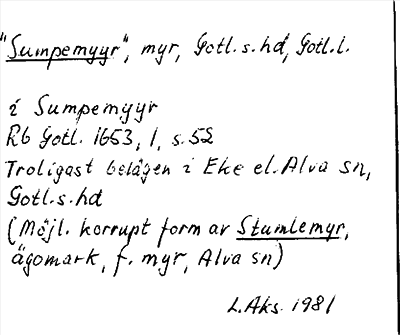 "Sumpemyyr", myr, Gotl.s.hd, Gotl.l.
i Sumpemyyr
Rb Gotl. 1653, 1, s.52
Troligast belägen i Eke el. Alva sn,
Gotl.s.hd
(Möjl. korrupt form av Stumlemyr,
ägomark, f. myr, Alva sn)
L.Aks. 1981